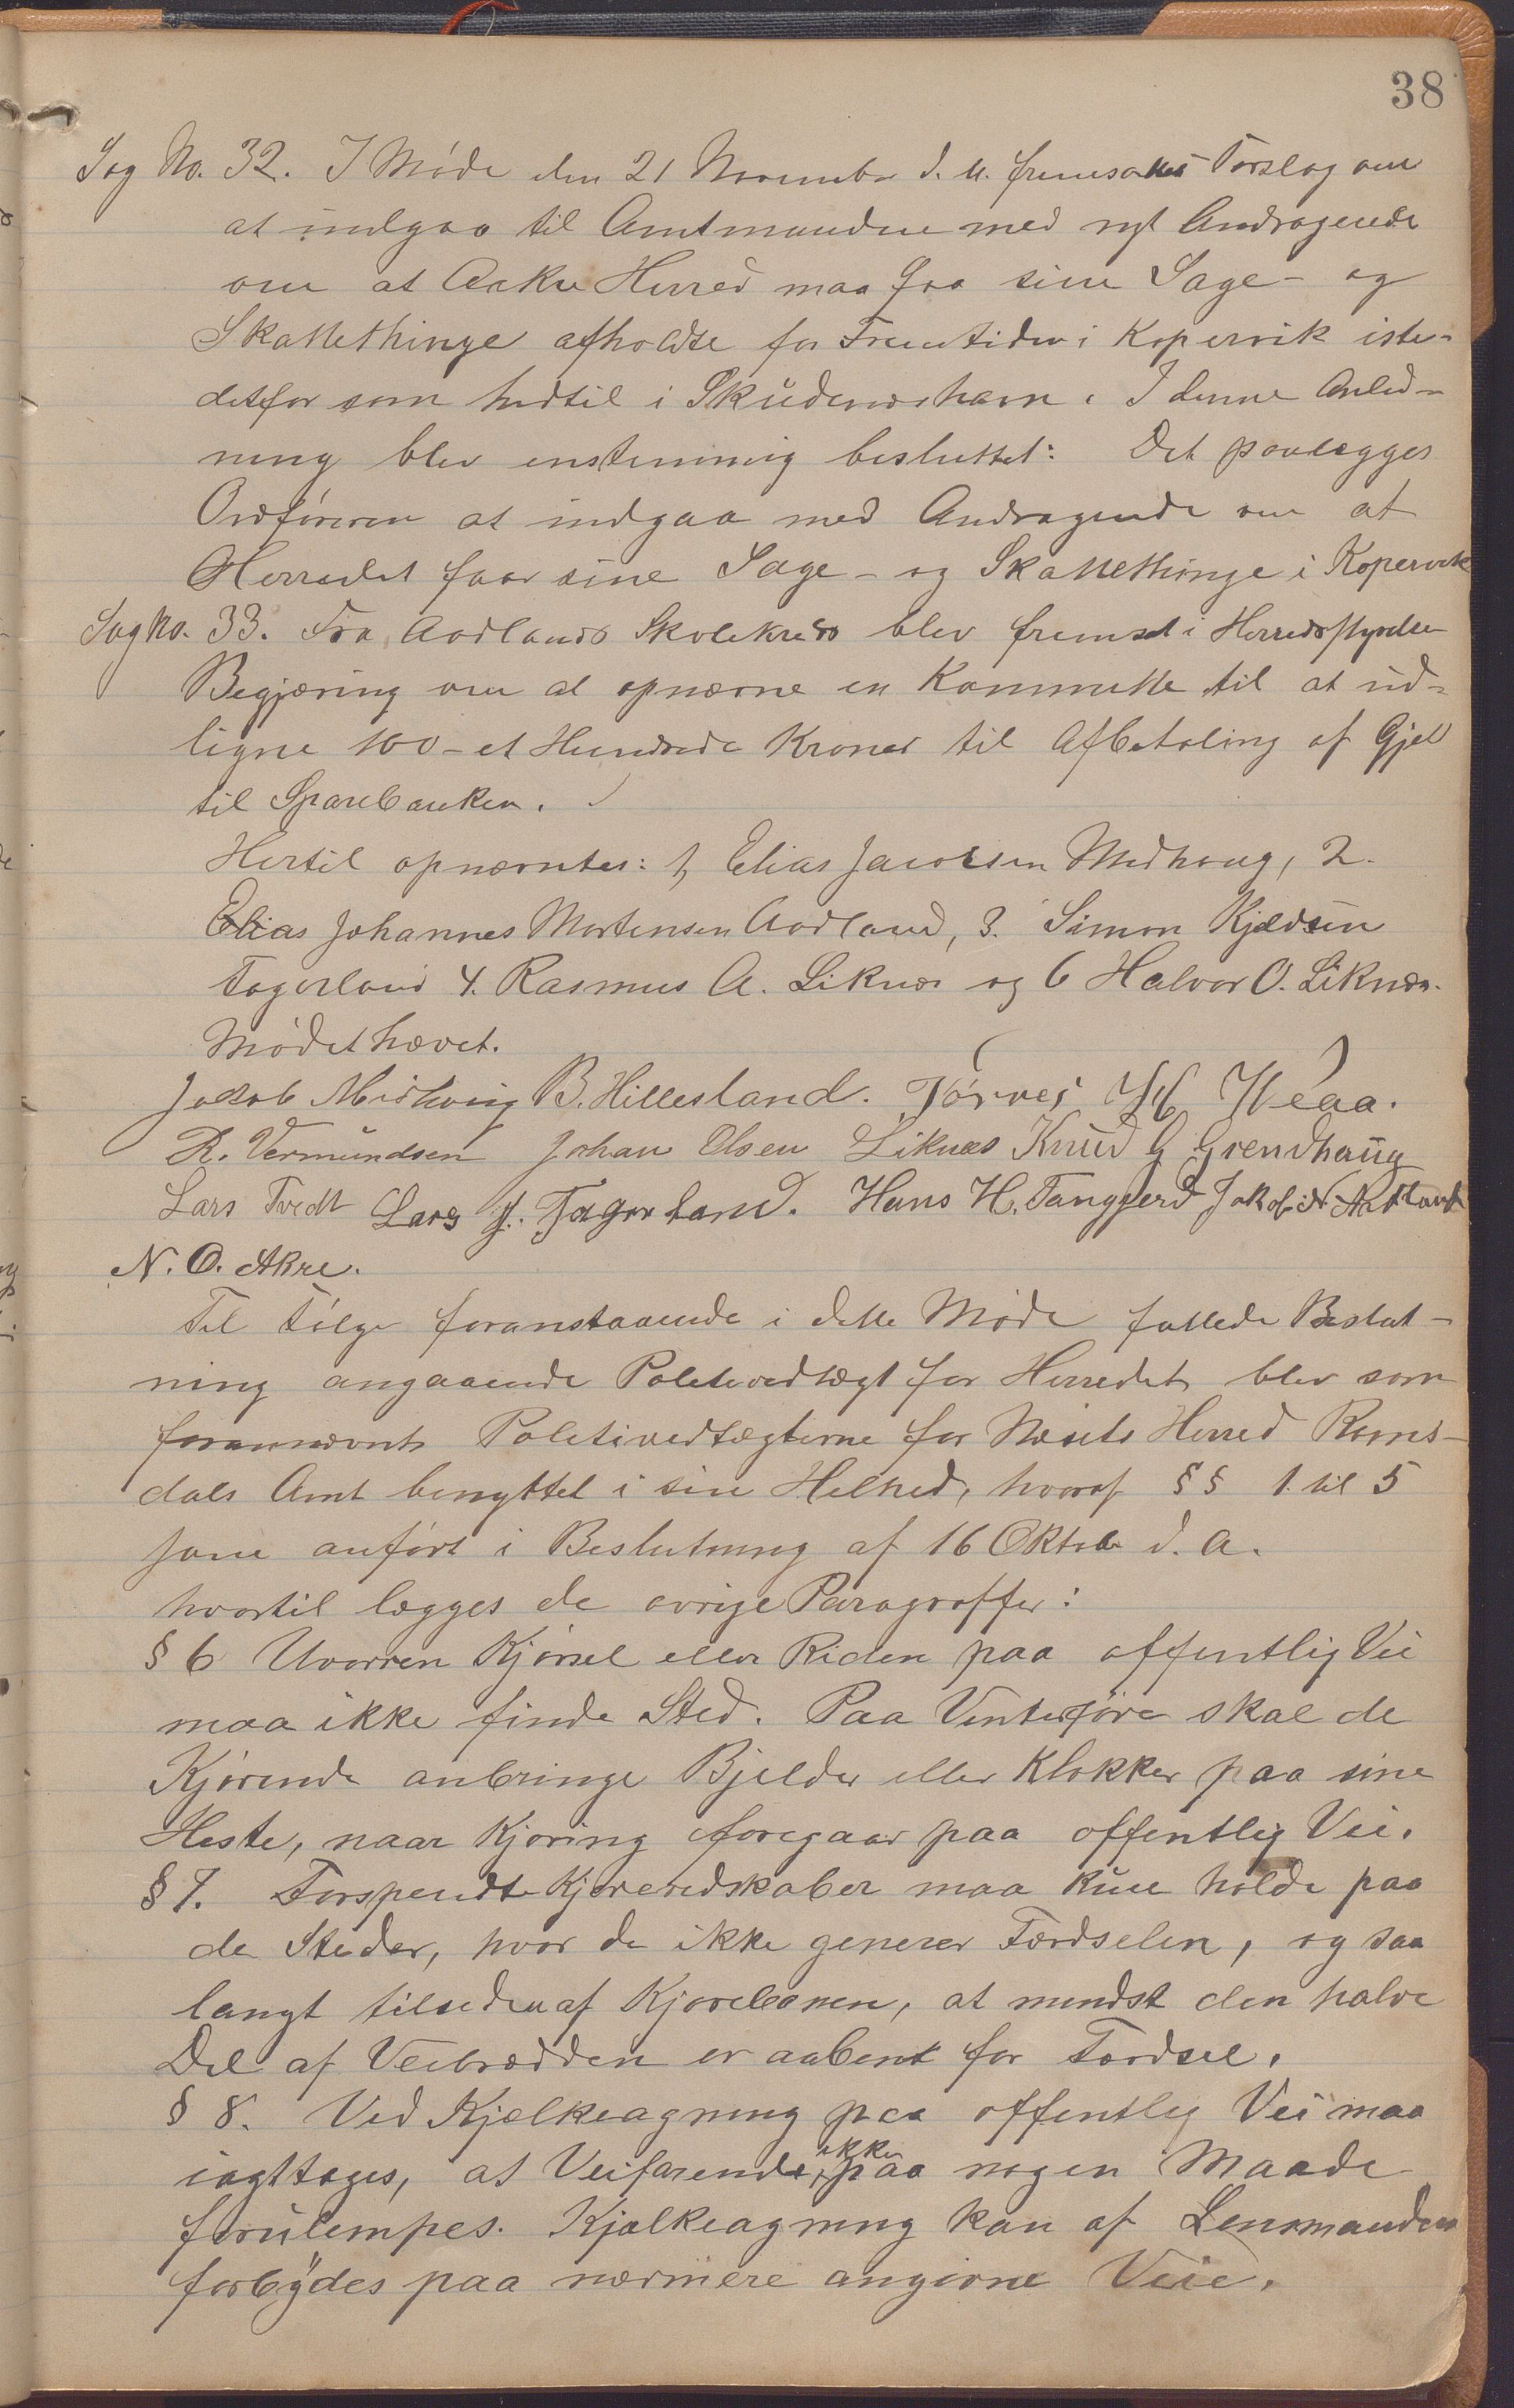 38
Sag No. 32. I Møde den 21 November d. A. fremsattes Forslag om
at indgaa til Amtmanden med nyt Andragende
om at Aakre Herred maa faa sine Sage- og
Skattethinge afholdte for Fremtiden i Kopervik iste-
detfor som hidtil i Skudeneshavn. I denne Anled-
ning blev enstemmig besluttet: Det paalægges
Ordføreren at indgaa med Andragende om at
Herredet faar sine Sage- og Skattethinge i Kopervik
Sag No. 33. Fra Aadlands Skolekreds blev fremsat i Herredsstyrelsen
Begjæring om at opnævne en Kommitte til at ud-
ligne 100 - et Hundrede Kroner til Afbetaling af Gjel
til Sparebanken.
Hertil opnævntes: 1, Elias Jacobsen Medhaug, 2.
Elias Johannes Mortensen Aadland, 3. Simon Kjeldsen
Fagerland 4. Rasmus A. Liknes og 6 Halvor O. Liknæs.
Mødet hævet.
Jakob Midhaug B. Hillesland. Tørres Veaa.
R. Vermundsen Johan Olsen Liknæs Knud G Grendhaug
Lars Tvedt Lars J. Fagerland. Hans H. Tangjerd Jakob N. Aadland
N. O. Akre.
Til Følge foranstaaende i dette Møde fattede Beslut-
ning angaaende Politivedtægt for Herredet blev som
forannævnt Politivedtægterne for Næsets Herred Roms-
dals Amt benyttet i sin Helhed, hvoraf §§ 1 til 5
som anført i Beslutning af 16 Oktob d. A.
hvortil lægges de øvrige Paragraffer:
§ 6 Uvorren Kjørsel eller Riden paa offentlig Vei
maa ikke finde Sted. Paa Vinterføre skal de
Kjørende anbringe Bjelder eller Klokker paa sine
Heste, naar Kjøring foregaar paa offentlig Vei.
§ 7. Forspendte Kjøreredskaber maa kun holde paa
de Steder, hvor de ikke generer Færdselen, og saa
langt tilsiden af Kjørebanen, at mindst den halve
Del af Veibredden er aabent for Færdsel.
§ 8. Ved Kjælkeagning paa offentlig Vei maa
iagttages, at Veifarende ikke paa nogen Maade
forulempes. Kjælkeagning kan af Lensmanden
forbydes paa nærmere angivne Veie.